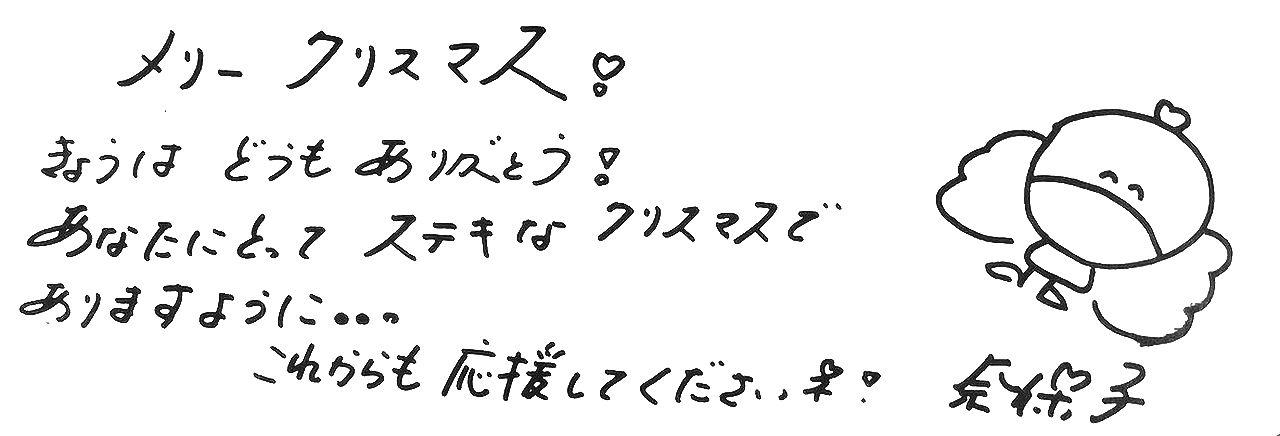 メリー クリスマス!
きょうは どうも ありがとう!
あなたにとって ステキな クリスマスで
ありますように...
これからも 応援してくださいネ!
奈保子